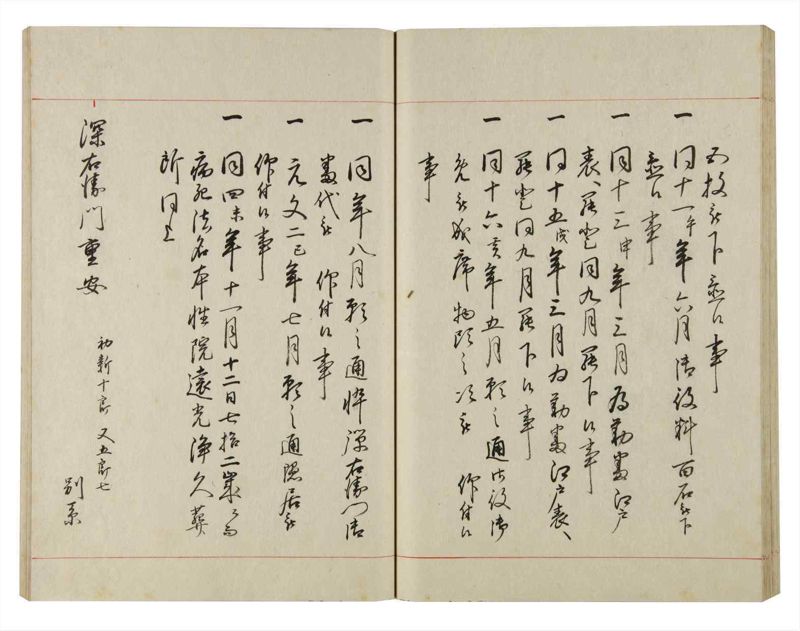 五枚被下置候事
一 同十一午年六月御役料百石被下
置候事
一 同十三申年三月為勤番江戸
表、罷登同九月罷下候事
一 同十五戌年三月為勤番江戸表、
罷登同九月罷下候事
一 同十六亥年五月願之通御役御
免被成席物頭之次被 仰付候
事
一 同年八月願之通悴深右衛門御
番代被 仰付候事
一 元文二巳年七月願之通隠居被
仰付候事
一 同四未年十一月十二日七拾二歳ニ而
病死法名本性院遠光浄久葬
所同上
深右衛門重安
初新十郎 又五郎七
別系